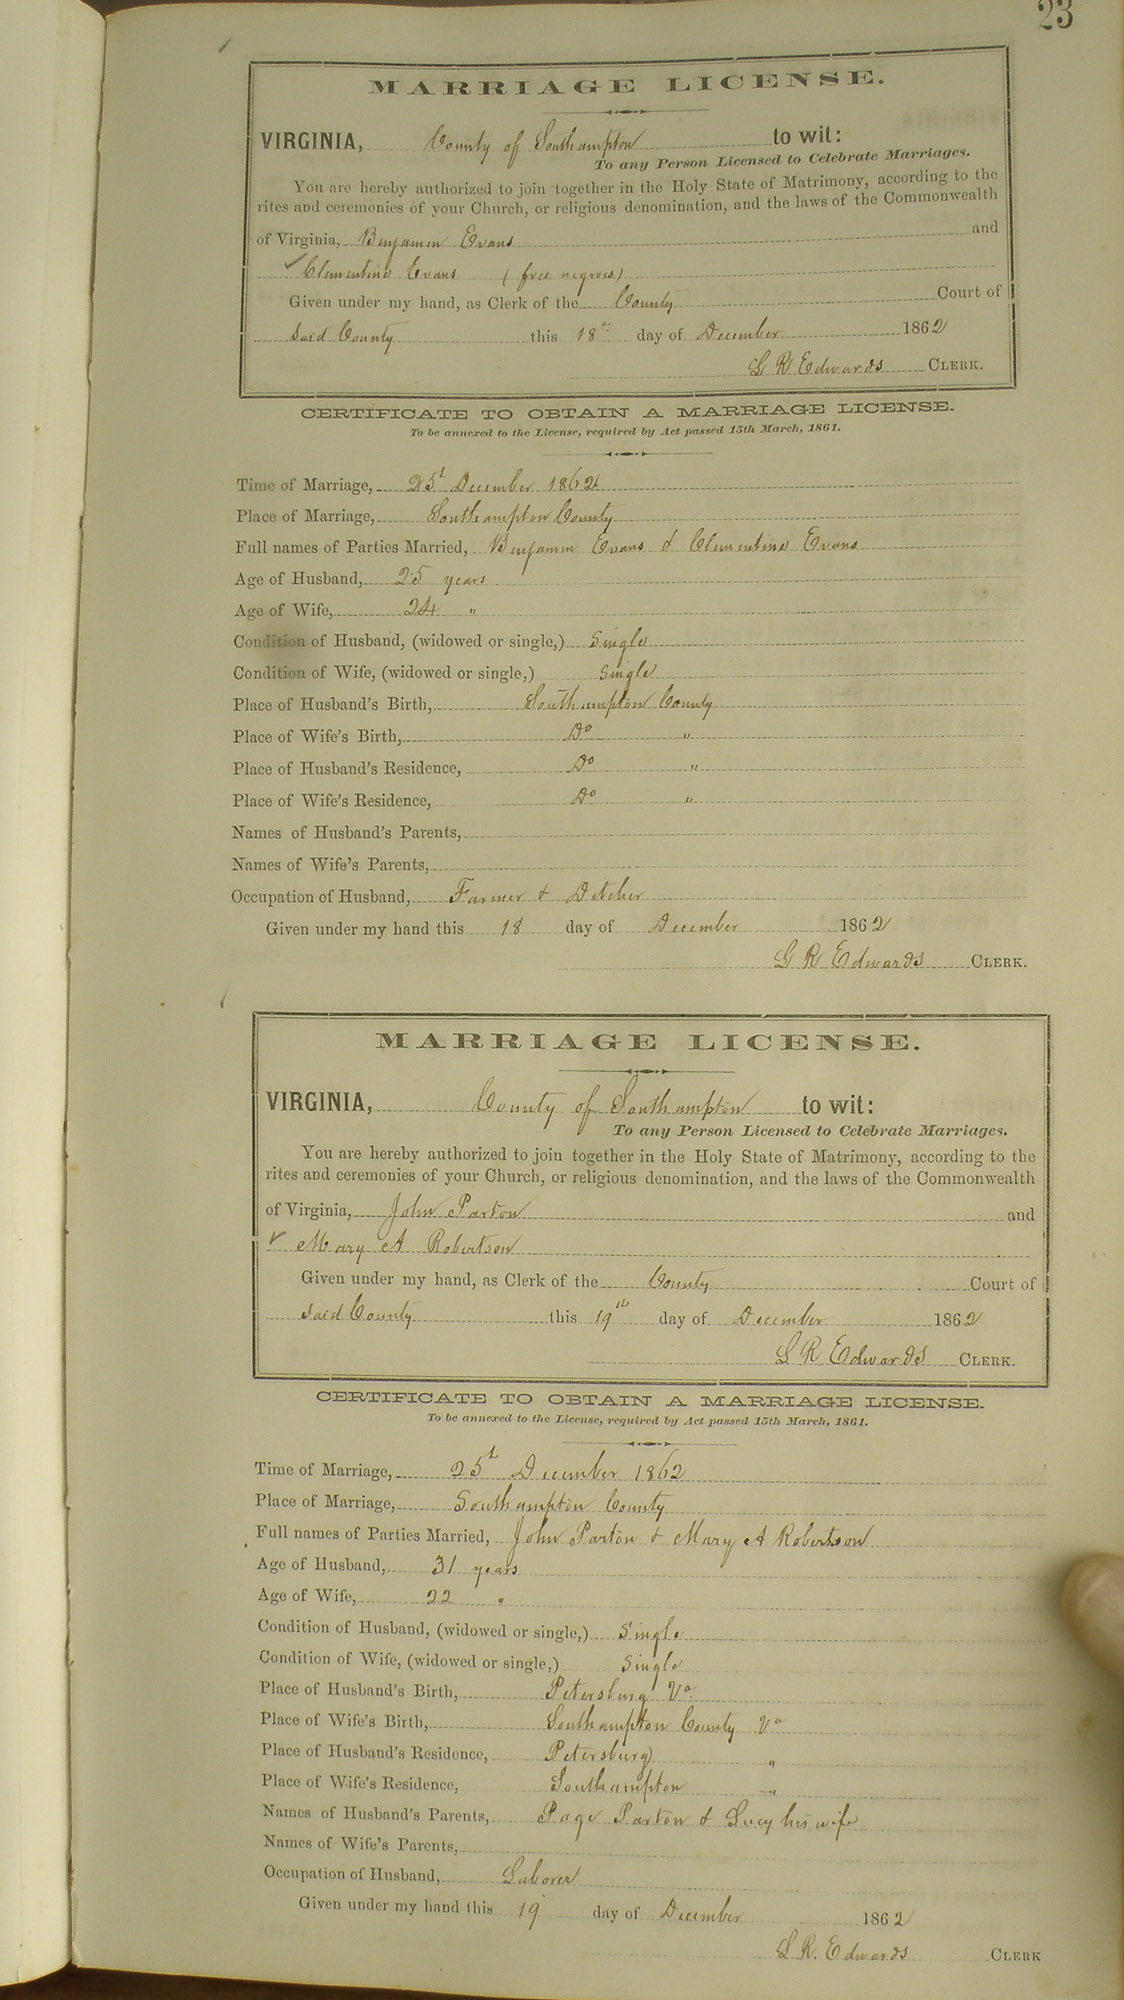 23
MARRIAGE LICENSE.
VIRGINIA, County of Southampton to wit:
To any Person Licensed to Celebrate Marriages.
You are hereby authorized to join together in the Holy State of Matrimony, according to the
rites and ceremonies of your Church, or religious denomination, and the laws of the Commonwealth
of Virginia, Benjamin Evans and
Clementine Evans (free negroes)
Given under my hand, as Clerk of the County Court of
said County this 18th day of December 1862
L R Edwards CLERK.
CERTIFICATE TO OBTAIN A MARRIAGE LICENSE.
To be annexed to the License, required by Act passed 15th March, 1861.
Time of Marriage, 25t December 1862
Place of Marriage, Southampton County
Full names of Parties Married, Benjamin Evans & Clementine Evans
Age of Husband, 25 years
Age of Wife, 24 "
Condition of Husband, (widowed or single,) Single
Condition of Wife, (widowed or single,) Single
Place of Husband's Birth, Southampton County
Place of Wife's Birth, Do "
Place of Husband's Residence, Do "
Place of Wife's Residence, Do "
Names of Husband's Parents,
Names of Wife's Parents,
Occupation of Husband, Farmer & Ditcher
Given under my hand this 18 day of December 1862
L R Edwards CLERK.
MARRIAGE LICENSE.
VIRGINIA, County of Southampton to wit:
To any Person Licensed to Celebrate Marriages.
You are hereby authorized to join together in the Holy State of Matrimony, according to the
rites and ceremonies of your Church, or religious denomination, and the laws of the Commonwealth
of Virginia, John Parton and
Mary A Robertson
Given under my hand, as Clerk of the County Court of
said County this 19th day of December 1862
L R Edwards CLERK.
CERTIFICATE TO OBTAIN A MARRIAGE LICENSE.
To be annexed to the License, required by Act passed 15th March, 1861.
Time of Marriage, 25t December 1862
Place of Marriage, Southampton County
Full names of Parties Married, John Parton & Mary A Robertson
Age of Husband, 31 years
Age of Wife, 22 "
Condition of Husband, (widowed or single,) Single
Condition of Wife, (widowed or single,) Single
Place of Husband's Birth, Petersburg Va
Place of Wife's Birth, Southampton County Va
Place of Husband's Residence, Petersburg "
Place of Wife's Residence, Southampton "
Names of Husband's Parents, Page Parton & Lucy his wife
Names of Wife's Parents,
Occupation of Husband, Laborer
Given under my hand this 19 day of December 1862
L R. Edwards CLERK